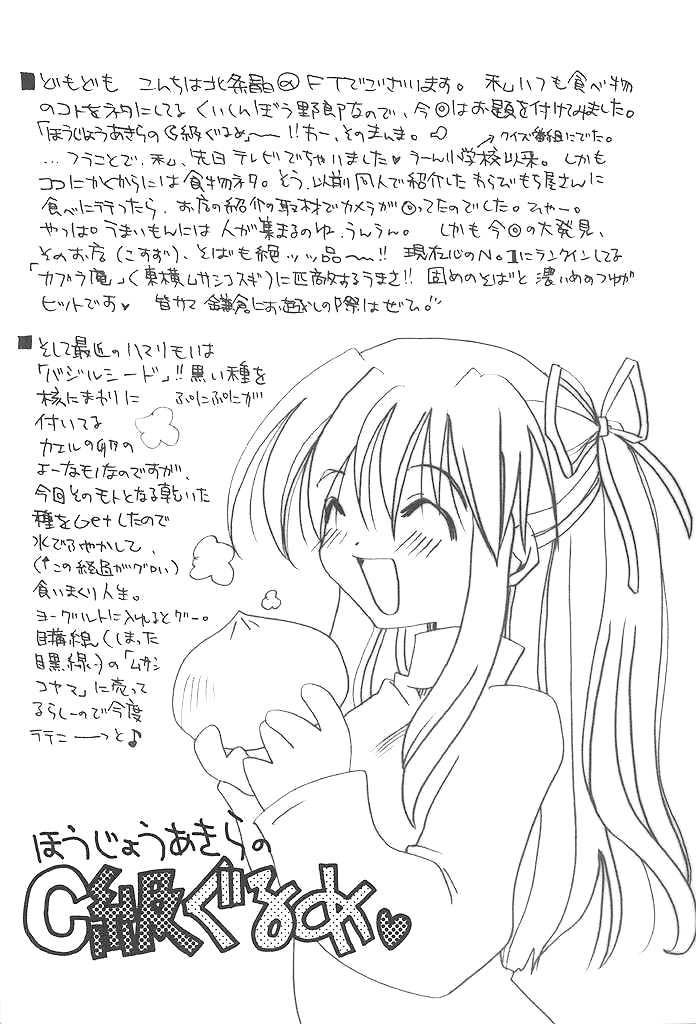 ■どもども こんちは北条晶@FTでございます。 私いつも食べ物
のコトをネタにしてるくいしんぼう野郎なので、今回はお題を付けてみました。
「ほうじょうあきらのC級ぐるめ」〜!!わー、そのまんま。
→クイズ番組にでた。
...つうことで、私、先日テレビでちゃいました♥うーん小学校以来。しかも
ココにかくからには食物ネタ。そう、以前同人で紹介したわらびもち屋さんに
食べに行ったら、お店の紹介の取材でカメラが回ってたのでした。ひゃー。
やっぱ。うまいもんには人が集まるのね、うんうん。 しかも今回の大発見、
そのお店(こすず)、そばも絶ッッ品〜!! 現在心のNo.1にランクインしてる
「カブラ庵」(東横ムサシコスギ)に匹敵するうまさ!! 固めのそばと濃いめのつゆが
ヒットです♥ 皆サマ鎌倉にお越しの際はぜひ。
■そして最近のハマリモノは
「バジルシード」!!黒い種を
核にまわりに ぷにぷにが
付いてる
カエルの卵の
よーなモノなのですが、
今回そのモトとなる乾いた
種をGetしたので
水でふやかして、
(↑この経過がグロい)
食いまくり人生。
ヨーグルトに入れるとグー。
目蒲線(しまった
目黒線)の「ムサシ
コヤマ」に売って
るらしーので今度
行こーっと♪
ほうじょうあきらの
C級ぐるめ♥